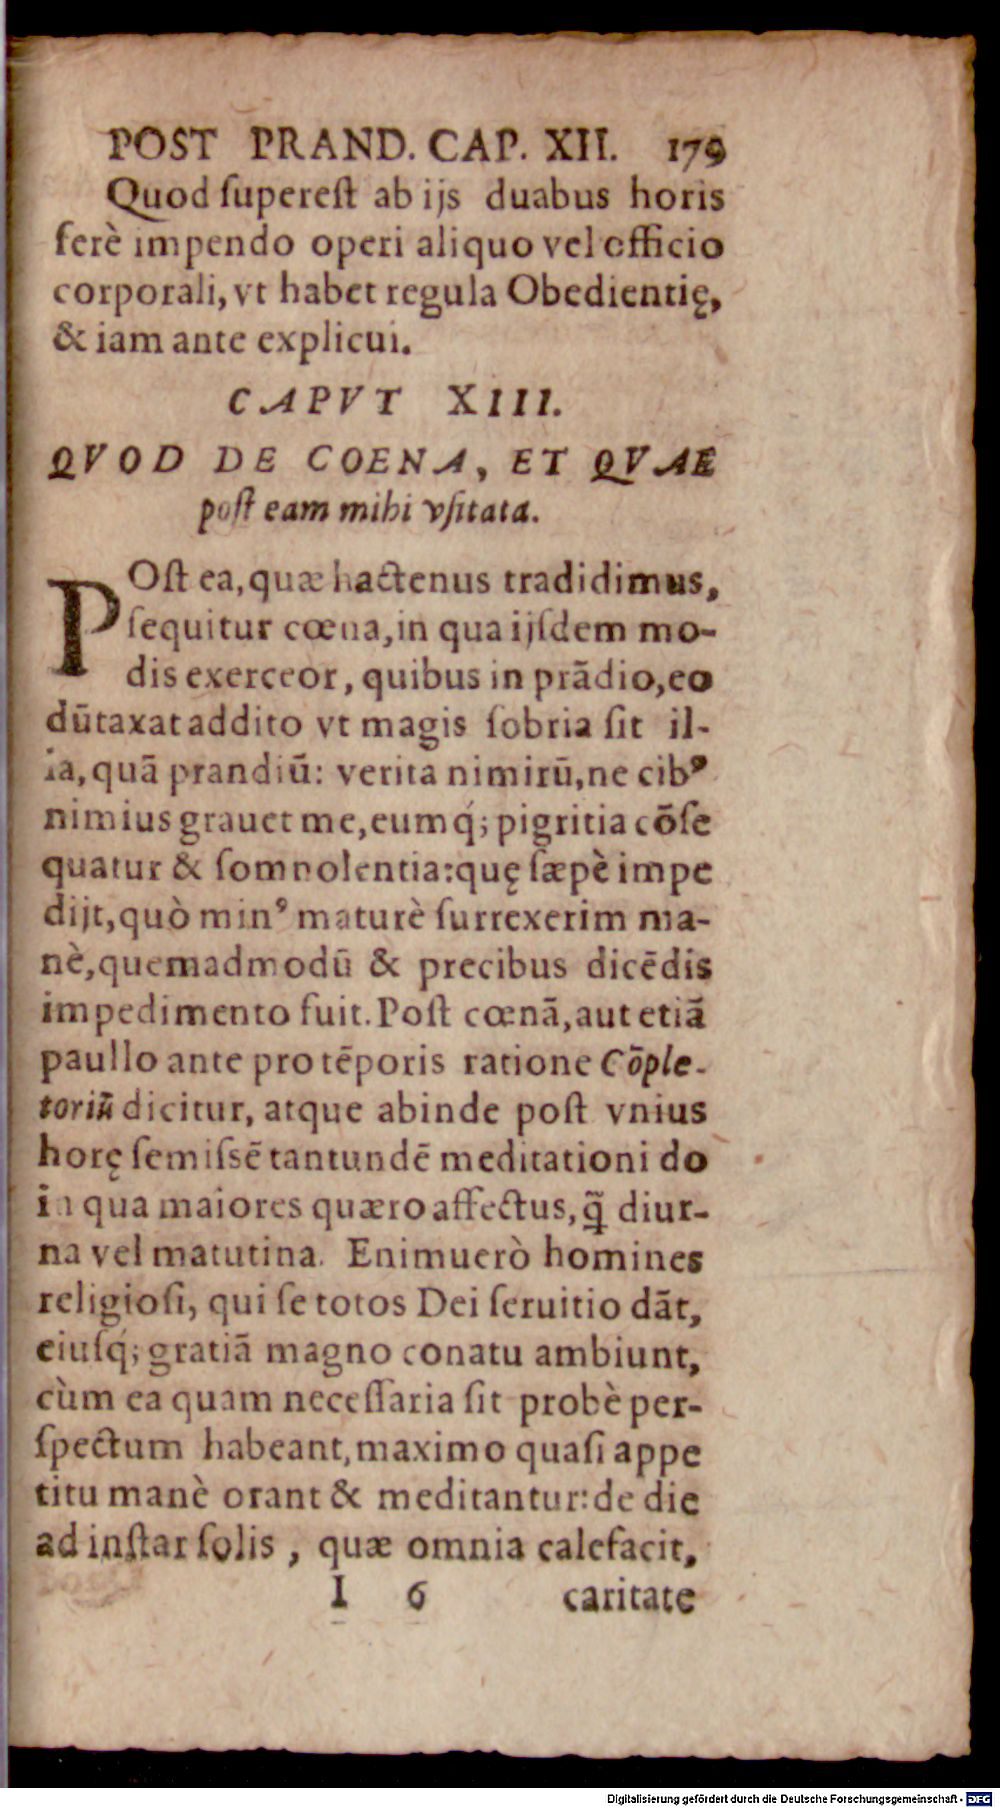 POST PRAND. CAP. XII. 179
Quod ſupereſt ab ijs duabus horis
ferè impendo operi aliquo vel officio
corporali, vt habet regula Obedientię,
& iam ante explicui.
CAPVT XIII.
QVOD DE COENA, ET QVAE
poſt eam mihi vſitata.
POſt ea, quæ hactenus tradidimus,
ſequitur cœna, in qua ijſdem mo-
dis exerceor, quibus in prādio, eo
dūtaxat addito vt magis ſobria ſit il-
la, quā prandiū: verita nimirū, ne cibꝰ
nimius grauet me, eumq́; pigritia cōſe
quatur & ſomnolentia: quę ſæpè impe
dijt, quò minꝰ maturè ſurrexerim ma-
nè, quemadmodū & precibus dicēdis
impedimento fuit. Poſt cœnā, aut etiā
paullo ante pro tēporis ratione Cōple-
toriū dicitur, atque abinde poſt vnius
horę ſemiſſē tantundē meditationi do
in qua maiores quæro affectus, q̃ diur-
na vel matutina. Enimuerò homines
religioſi, qui ſe totos Dei ſeruitio dāt,
eiuſq́; gratiā magno conatu ambiunt,
cùm ea quam neceſſaria ſit probè per-
ſpectum habeant, maximo quaſi appe
titu manè orant & meditantur: de die
ad inſtar ſolis, quæ omnia calefacit,
I 6 caritate
Digitalisierung gefördert durch die Deutsche Forschungsgemeinschaft - DFG